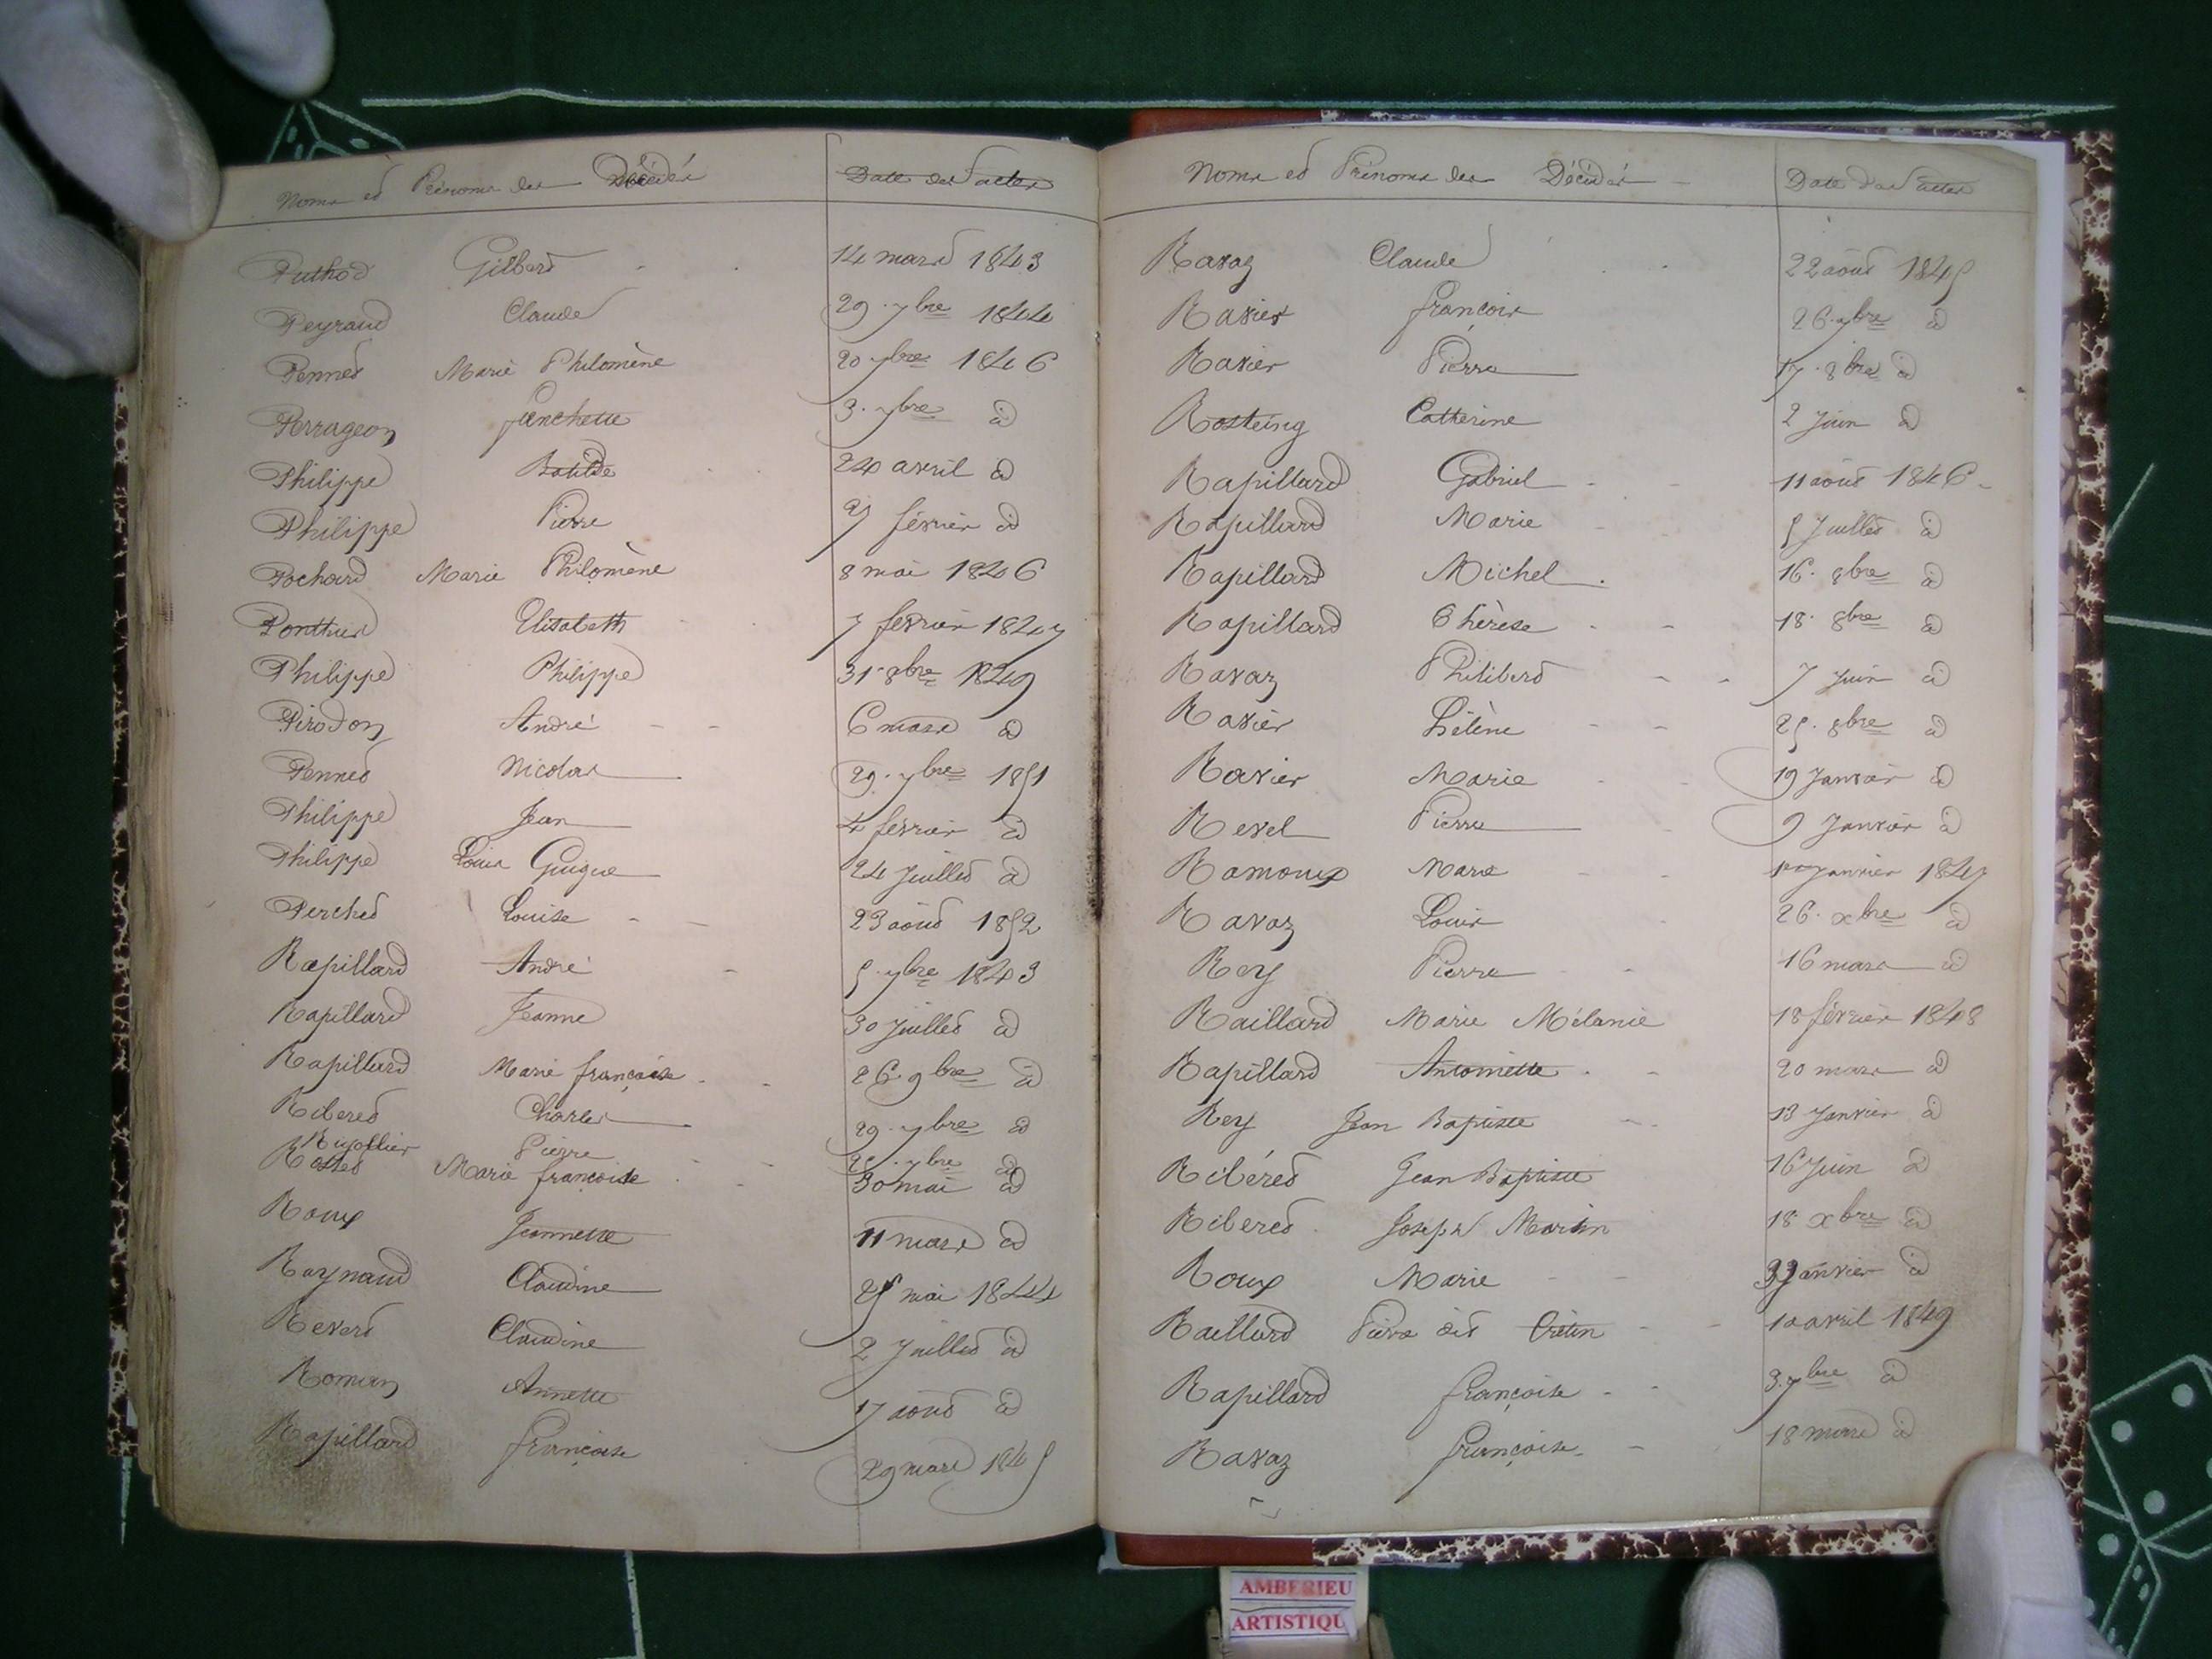 Noms et Prénoms des Décédés Date des actes
Puthod Gilbert 14 mars 1843
Peyraud Claude 29. 7bre 1844
Pennet Marie Philomène 20 7bre 1846
Perrageon fanchette 3. 7bre d
Philippe Batilde 24 avril d
Philippe Pierre 27 février d
Pochard Marie Philomène 8 mai 1846
Ponthus Elisabeth 7 fevrier 1847
Philippe Philippe 31. 8bre 1849
Pirodon André 6 mars d
Pennet Nicolas 29. 7bre 1851
Philippe Jean 4 février d
Philippe Louis Guigue 24 Juillet d
Perchet Louise 23 aout 1852
Rapillard André 5. 7bre 1843
Rapillard Jeanne 30 Juillet d
Rapillard Marie françoise 26. 9bre d
Riberet Charles 29. 7bre d
Rujoflier Pierre 7bre d
Rosset Marie françoise 30 mai d
Roux Jeannette 11 mars d
Raynaud Claudine 25 mai 1844
Revert Claudine 2 Juillet d
Roman Annette 17 aout d
Rapillard françoise 29 mars 1845
Noms et Prénoms des Décédés Date des actes
Ravaz Claude 22 aout 1845
Ravier françois 26. 7bre d
Ravier Pierre 17. 8bre d
Rosteing Catherine 2 Juin d
Rapillard Gabriel 11 aout 1846
Rapillard Marie 5 Juillet d
Rapillard Michel 16. 8bre d
Rapillard Thérèse 18. 8bre d
Ravaz Philibert 7 Juin d
Ravier Hélène 25. 8bre d
Ravier Marie 19 Janvier d
Revel Pierre 9 Janvier d
Ramoux Marie 1er Janvier 1847
Ravaz Louis 26. xbre d
Rey Pierre 16 mars d
Raillard Marie Mélanie 18 février 1848
Rapillard Antoinette 20 mars d
Rey Jean Baptiste 13 Janvier d
Ribéret Jean Baptiste 16 Juin d
Riberet Joseph Martin 18 xbre d
Roux Marie Janvier d
Raillard Pierre dit Crétin 10 avril 1849
Rapillard françoise 3. 7bre d
Ravaz françoise 18 mars d
AMBERIEU
ARTISTIQU